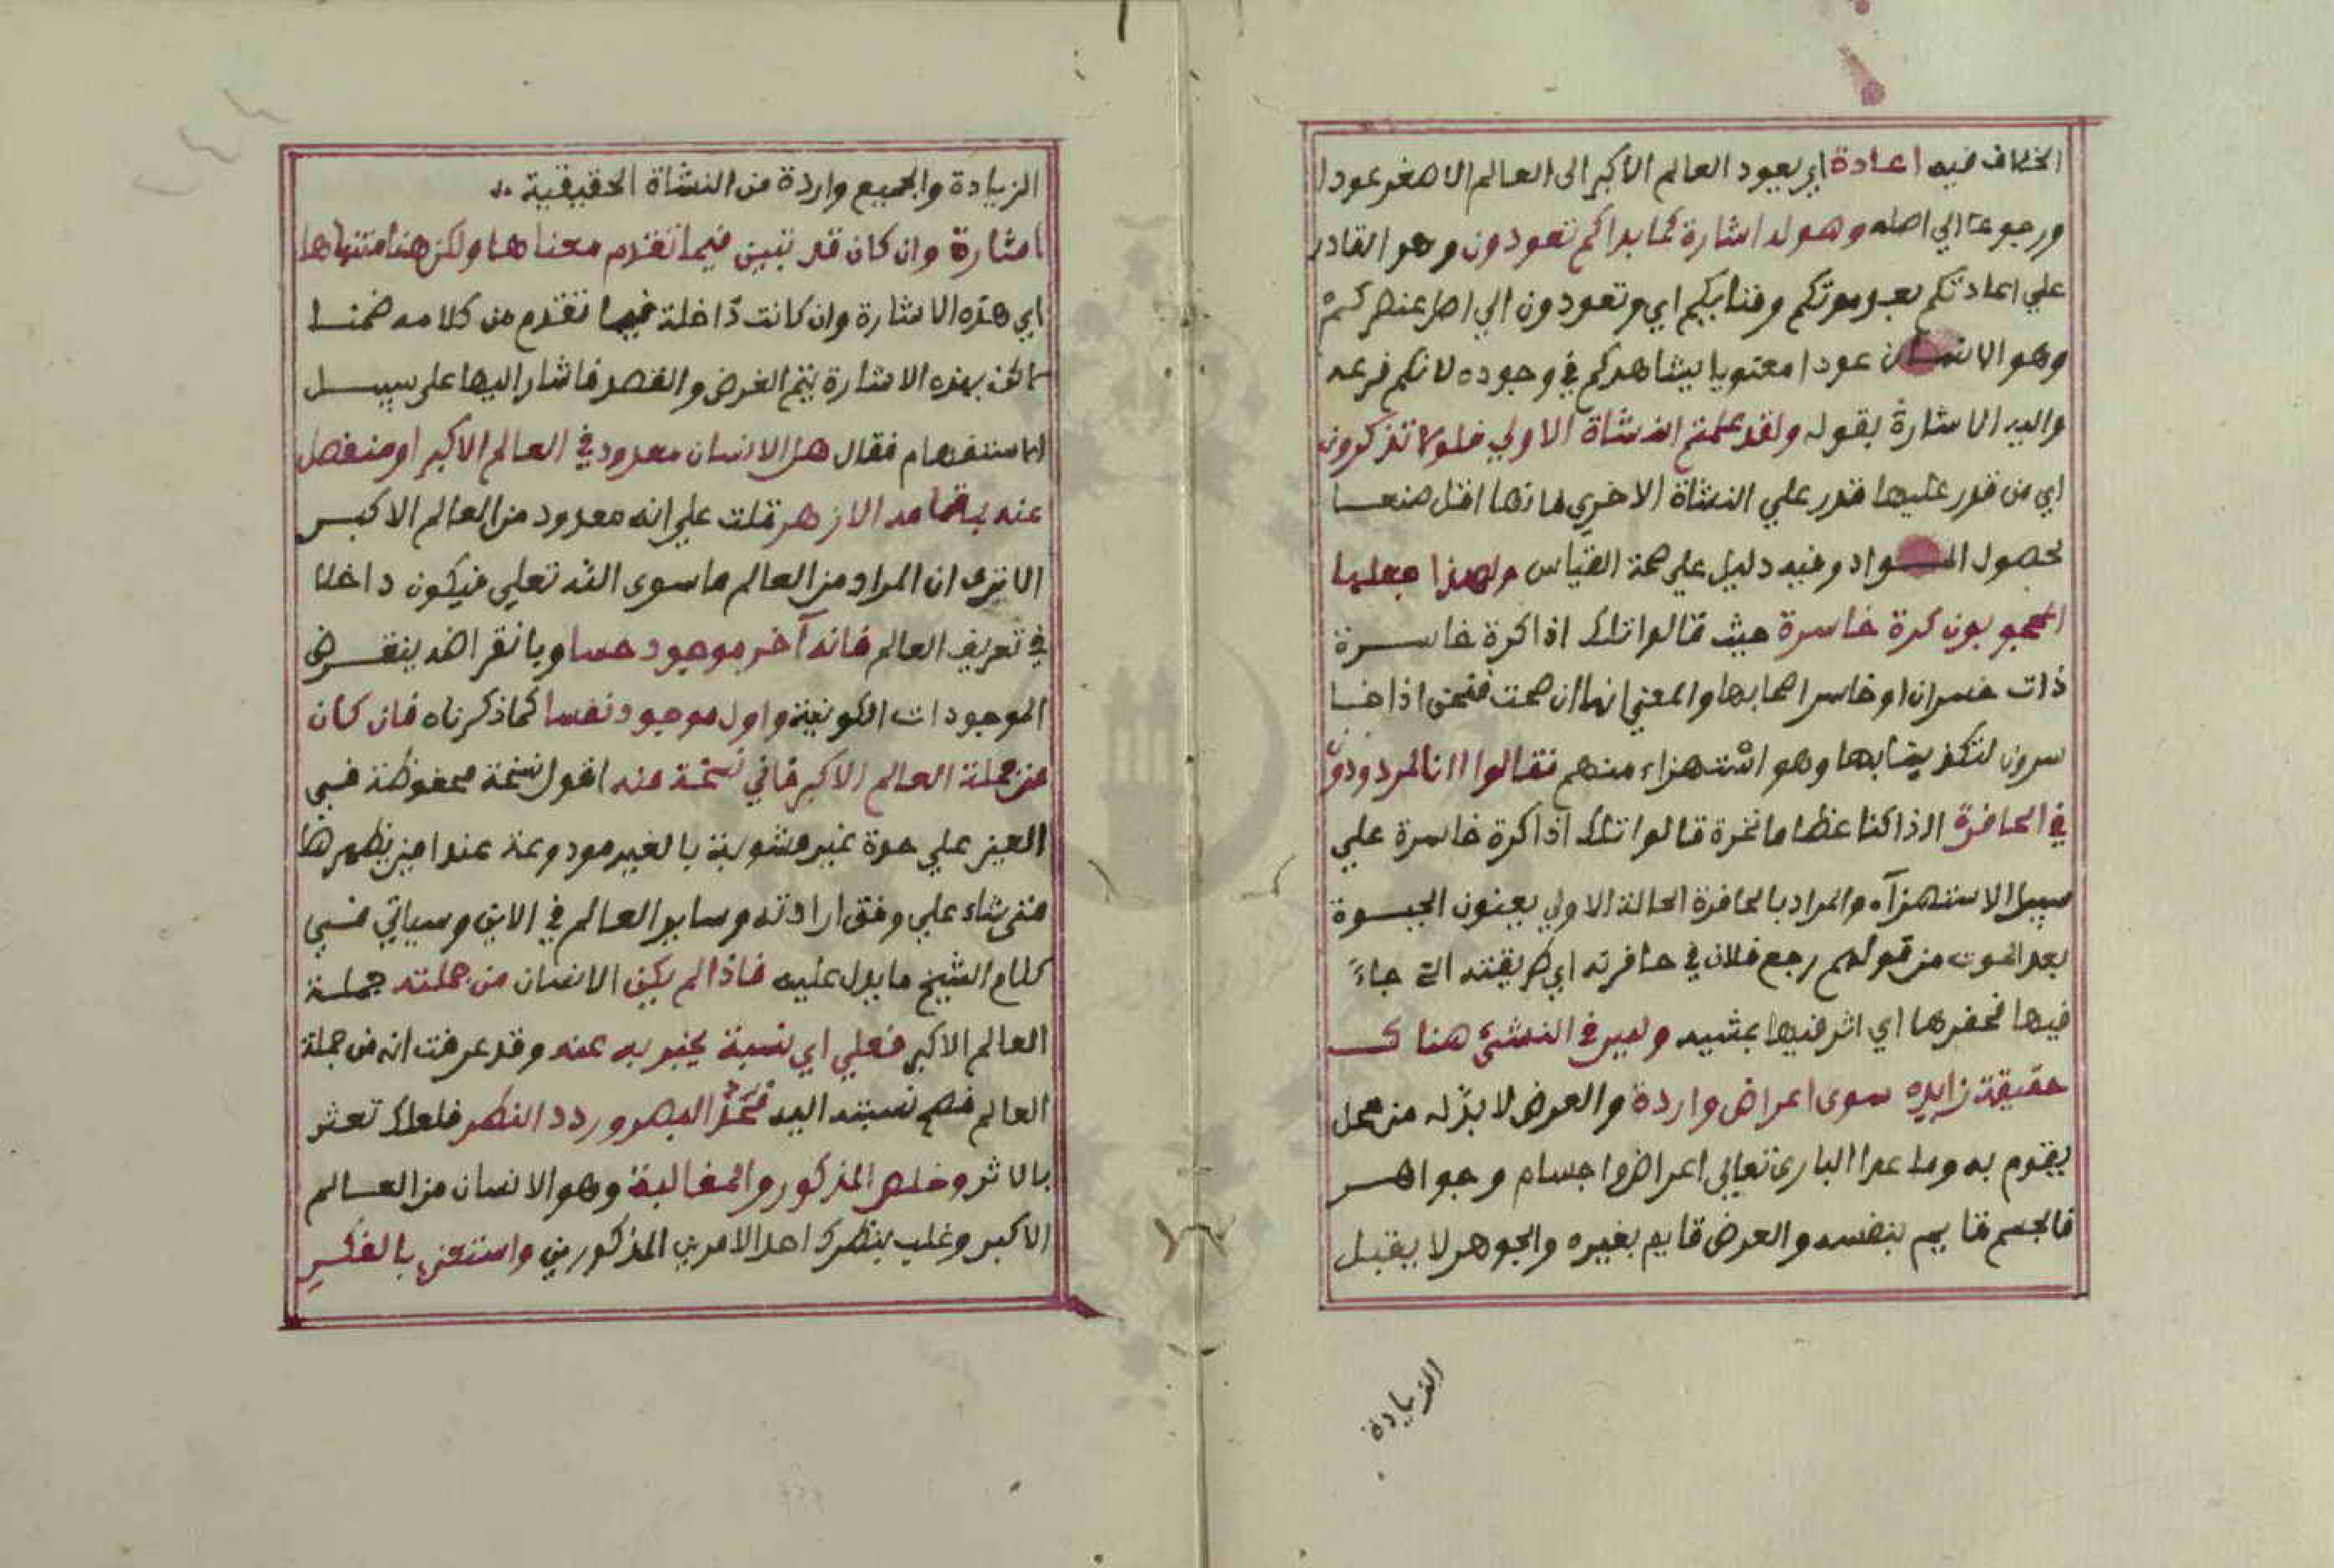 الخلاف فيه اعادة اي يعود العالم الاكبر الى العالم الاصغر عودا
ورجوعا الي اصله وهوله اشارة كما بداكم تعودون وهو القادر
علي اعادتكم بعد موتكم وفنايكم اي وتعودون الي اصل عنصركم
وهو الانسان عودا معنويا يشاهدكم في وجوده لانكم فرعه
واليه الاشارة بقوله ولقد علمتم النشاة الاولي فلولا تذكرون
اي من قدر عليها قدر علي النشاة الاخري فانها اقل صنعا
لحصول المواد وفيه دليل علي صحة القياس ولهذا جعلها
المحجوبون كرة خاسرة حيث قالوا تلك اذا كرة خاسرة
ذات خسران او خاسر اصحابها والمعني انها ان صحت فنحن اذا خا
سرون لتكذيبنا بها وهو استهزاء منهم فقالوا اانا لمردودون
في الحافرة ائذا كنا عظاما نخرة قالوا تلك اذا كرة خاسرة علي
سبيل الاستهزآء والمراد بالحافرة الحالة الاولي يعنون الحيوة
بعد الموت من قولهم رجع فلان في حافرته اي طريقته التي جاء
فيها فحفرها اي اثر فيها بمشيه وليس في النشئ هناك
حقيقة زايده سوى اعراض واردة والعرض لا بدّ له من محل
يقوم به وما عدا الباري تعالى اعراض واجسام وجواهر
فالجسم قايم بنفسه والعرض قايم بغيره والجوهر لا يقبل
الزيادة
الزيادة والجميع واردة من النشاة الحقيقية
اشارة وان كان قد تبين فيما تقدم معناها ولكن هنا منتهاها
اي هذه الاشارة وان كانت داخلة فيما تقدم من كلامه ضمنا
لكن بهذه الاشارة يتم الغرض والقصد فاشار اليها على سبيل
الاستفهام فقال هل الانسان معدود في العالم الاكبر او منفصل
عنه بمقامه الازهر قلت علي انه معدود من العالم الاكبر
الا ترى ان المراد من العالم ما سوى الله تعلي فيكون داخلا
في تعريف العالم فانه آخر موجود حسا وبانقراضه ينقرض
الموجودات الكونية واول موجود نفسا كما ذكرناه فان كان
من جملة العالم الاكبر فاني نسخة منه اقول نسخة محفوظة في
العين علي حدة غير مشوبة بالغير مودوعة عند امين يظهرها
متى شاء علي وفق ارادته وساير العالم في الاين وسياتي في
كلام الشيخ ما يدل عليه فاذا لم يكن الانسان من جملته جملة
العالم الاكبر فعلي اي نسبة يخبر به عنه وقد عرفت انه من جملة
العالم نسبته اليه البصر وردد النظر فلعلك تعثر
بالاثر وخلص المذكور والمغالبة وهو الانسان من العالم
الاكبر وغلب بنظرك احد الامرين المذكورين واستعن بالفكر